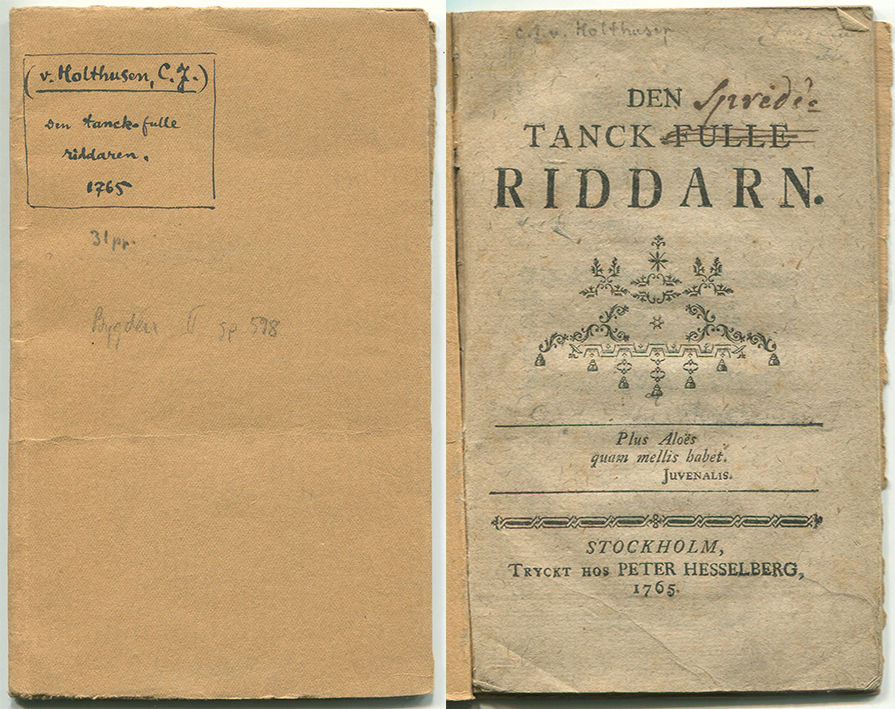 (v. Holthusen, C. J.)
Den tanck-fulle
riddaren.
1765
31 pp.
Bygdén II sp 598
C. J. v. Holthusen
DEN Spridi=
TANCK-FULLE
RIDDARN.
Plus Aloës
quam mellis habet.
JUVENALIS.
STOCKHOLM,
TRYCKT HOS PETER HESSELBERG,
1765.